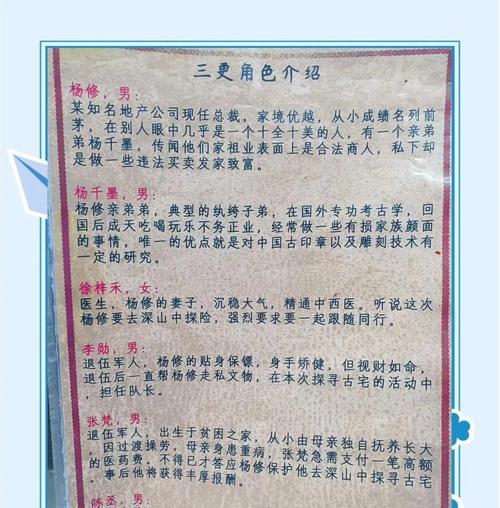 三更角色介绍
杨修，男：
某知名地产公司现任总裁，家境优越，从小成绩名列前
茅，在别人眼中几乎是一个十全十美的人，有一个亲弟
弟杨千墨，传闻他们家祖业表面上是合法商人，私下却
是做一些违法买卖发家致富。
杨千墨，男：
杨修亲弟弟，典型的纨绔子弟，在国外专功考古学，回
国后成天吃喝玩乐不务正业，经常做一些有损家族颜面
的事情，唯一的优点就是对中国古印章以及雕刻技术有
一定的研究。
徐梓禾，女：
医生，杨修的妻子，沉稳大气，精通中西医。听说这次
杨修要去深山中探险，强烈要求要一起跟随同行。
李勋，男：
退伍军人，杨修的贴身保镖，身手矫健，但视财如命，
退伍后一直帮杨修走私文物，在本次探寻古宅的活动中
，担任队长。
张梵，男：
退伍军人，出生于贫困之家，从小由母亲独自抚养长大
，因过渡操劳，母亲身患重病，张梵急需支付一笔高额
的医药费。不得已才答应杨修保护他去深山中探寻古宅
，事后他将获得丰厚报酬。
陈丞，男：